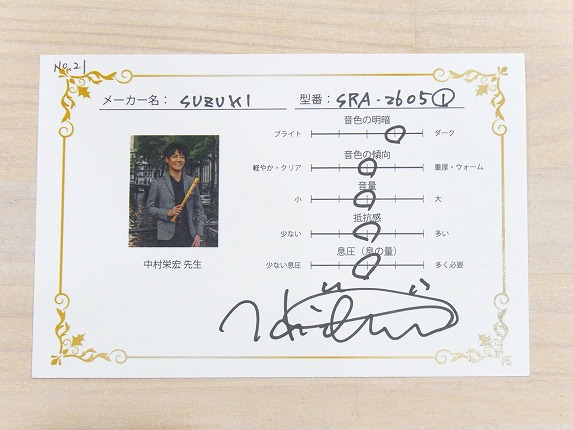 No.21
メーカー名： SUZUKI 型番： SRA-2605①
音色の明暗
ブライト ダーク
音色の傾向
軽やか・クリア 重厚・ウォーム
音量
小 大
抵抗感
少ない 多い
息圧（息の量）
少ない息圧 多く必要
中村栄宏 先生